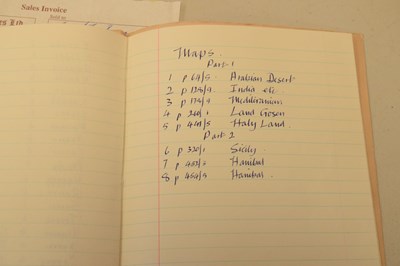 Sales Invoice
Maps.
Part 1
1 p 64/5 Arabian Desert
2 p 128/9 India etc.
3 p 178/9 Mediteranian
4 p 1 Land Gosen
5 p Holy Land.
Part 2
6 p 330/1 Sicily
7 p Hanibal
8 p 464/5 Hanibal.